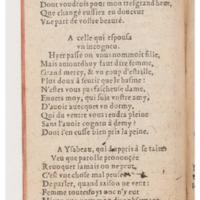 Dont voudrois pour mon tresgrand heur,
Que changé eussiez en douceur
Vne part de vostre beauté.
A celle qui espousa
vn incogneu.
Hyer passé on vous nommoit fille,
Mais aniourdhuy faut dire femme,
Grand mercy, & vn coup d'estrille,
Plus doux à sentir que le basme:
N'estes vous pas fascheuse dame,
Encors moy, qui suis vostre amy,
D'auoir auecques vo dormy,
Qui du ventre vous rendra pleine
Sans l'auoir cogneu à demy?
Dont s'en cuisse bien pris la peine.
A Ysabeau, qui
Veu que parolle prononcée
Reuoquer iamais on ne peut,
C'est vne chose mal pensée
De parler, quand raison ne veut:
Femme toutesfoys